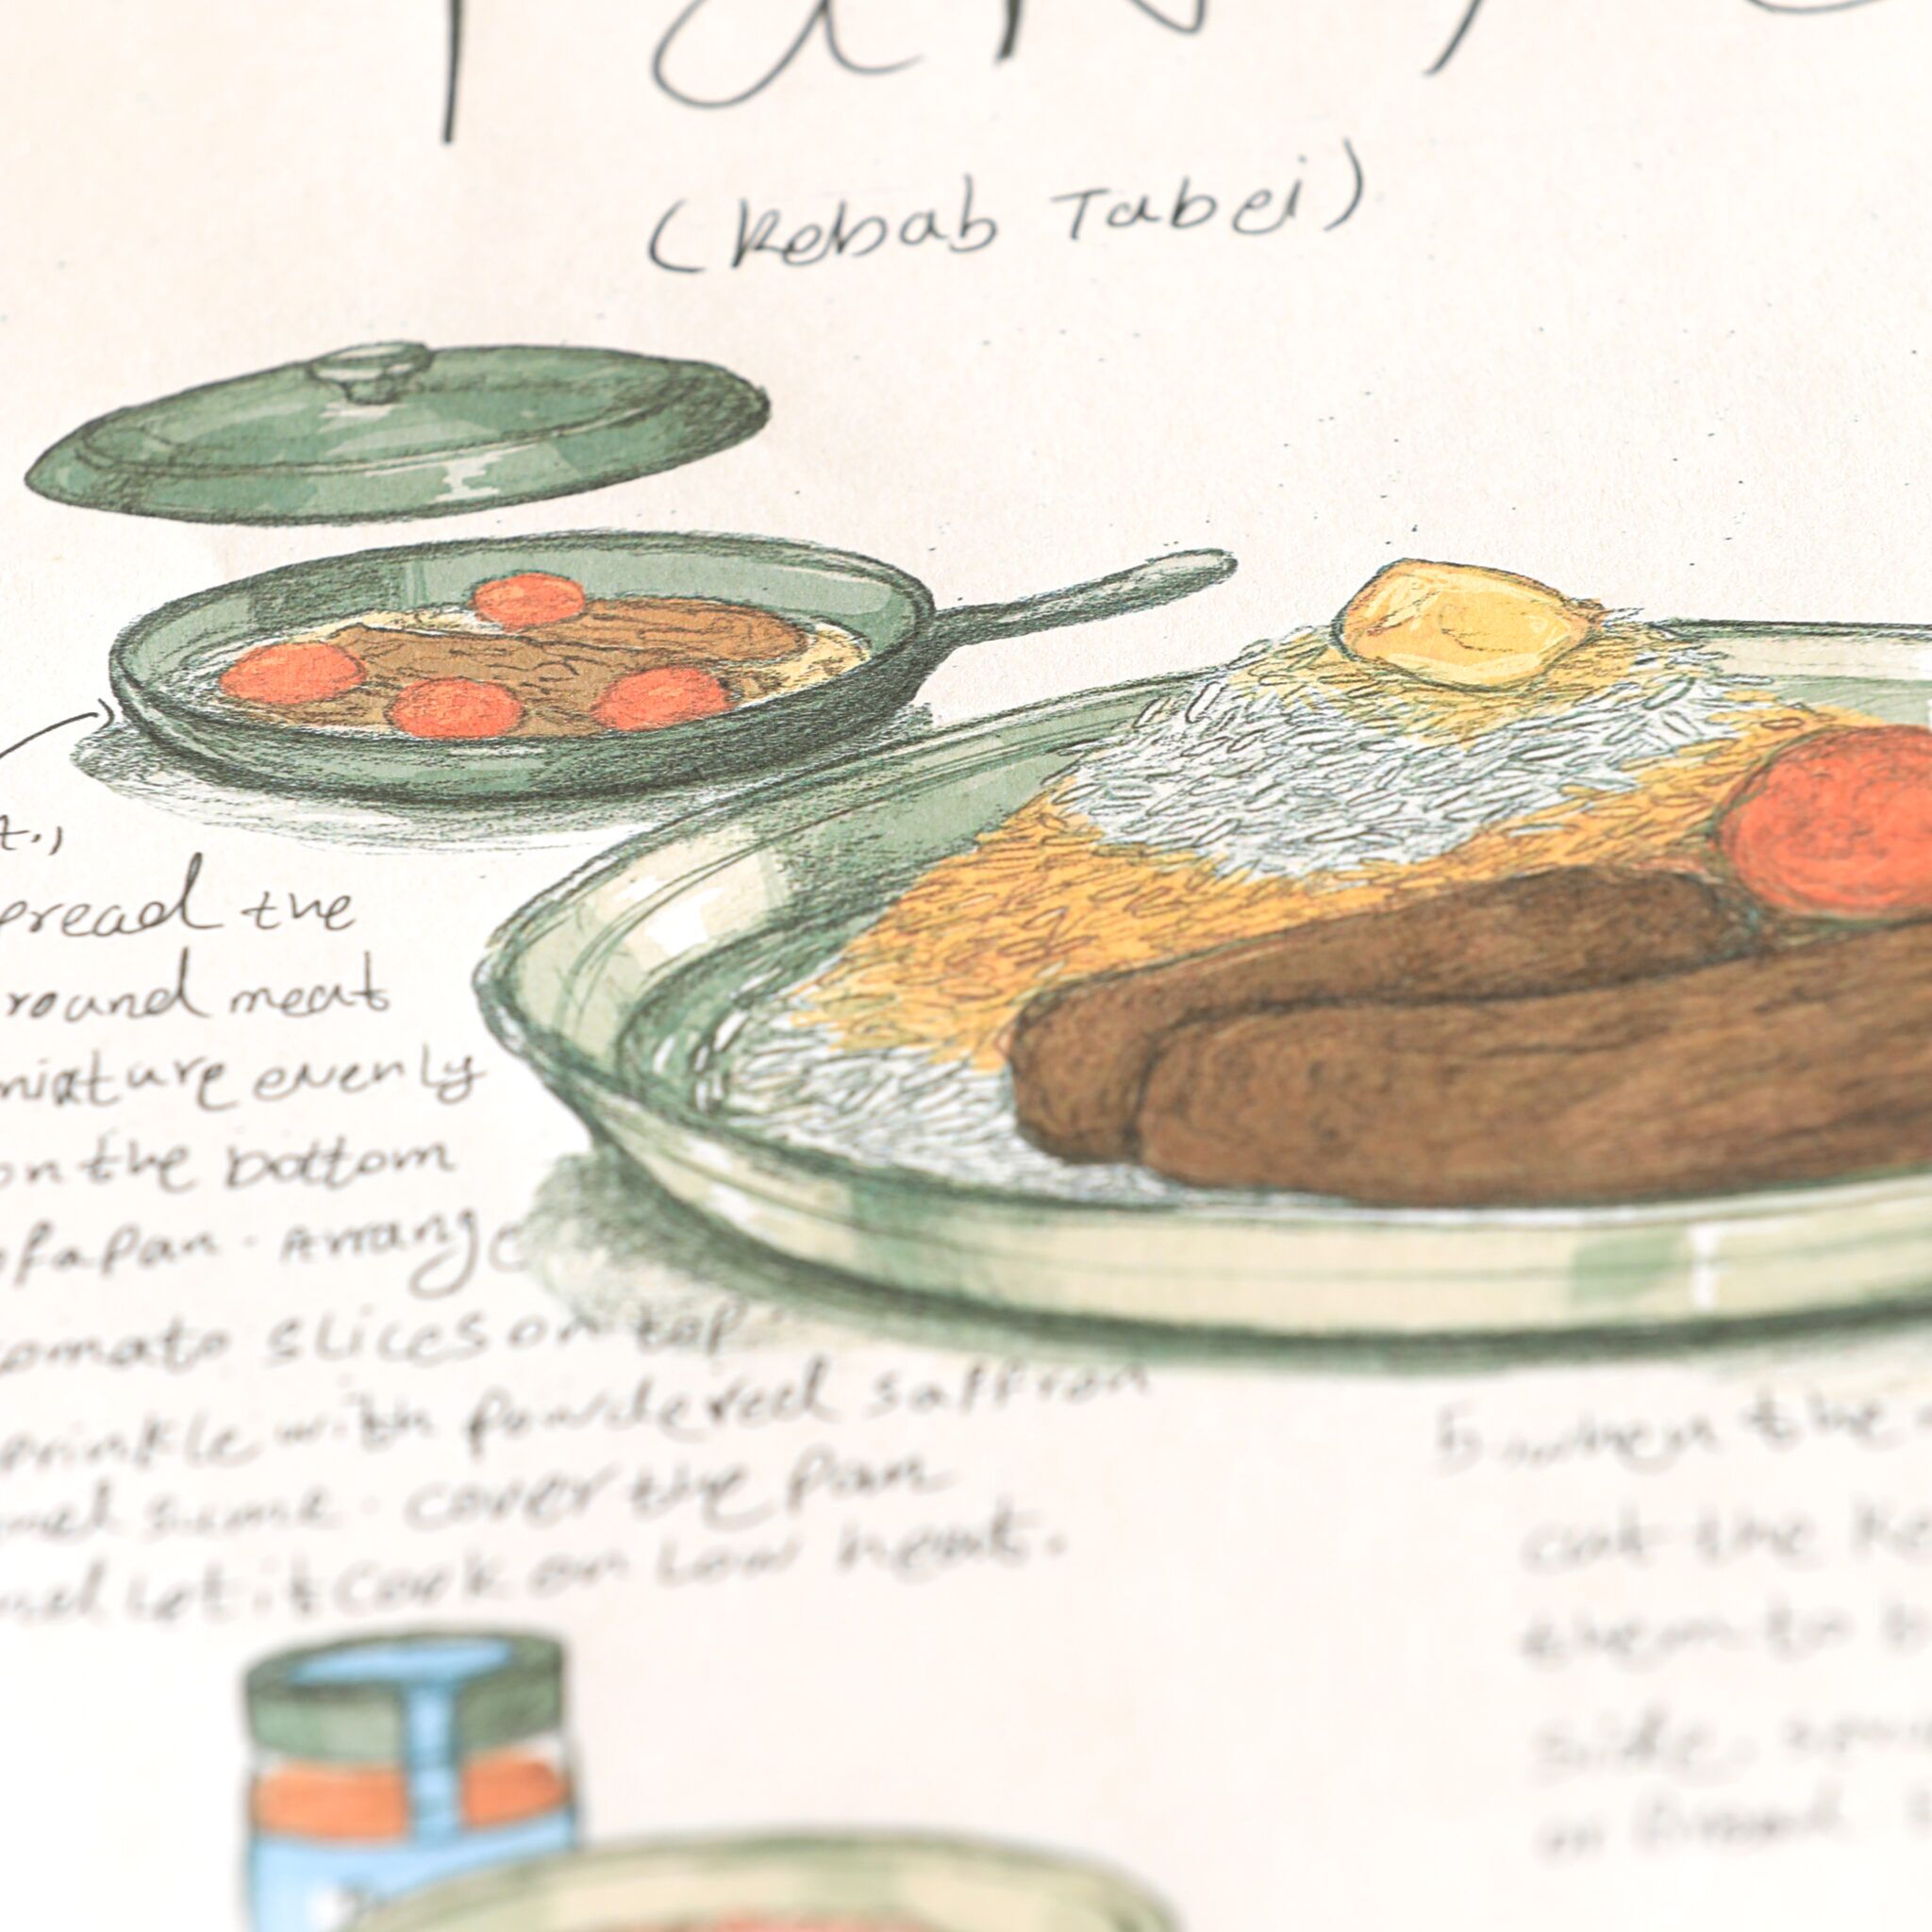 Pan K
(Kebab Tabei)
t.,
pread the
round meat
mixture evenly
on the bottom
of a Pan. Arrange
tomato slices on top
prinkle with powdered saffron
and sume. cover the Pan
and Let it cook on Low heat.
5. when the
cut the Ke
them to b
side.
or bread.